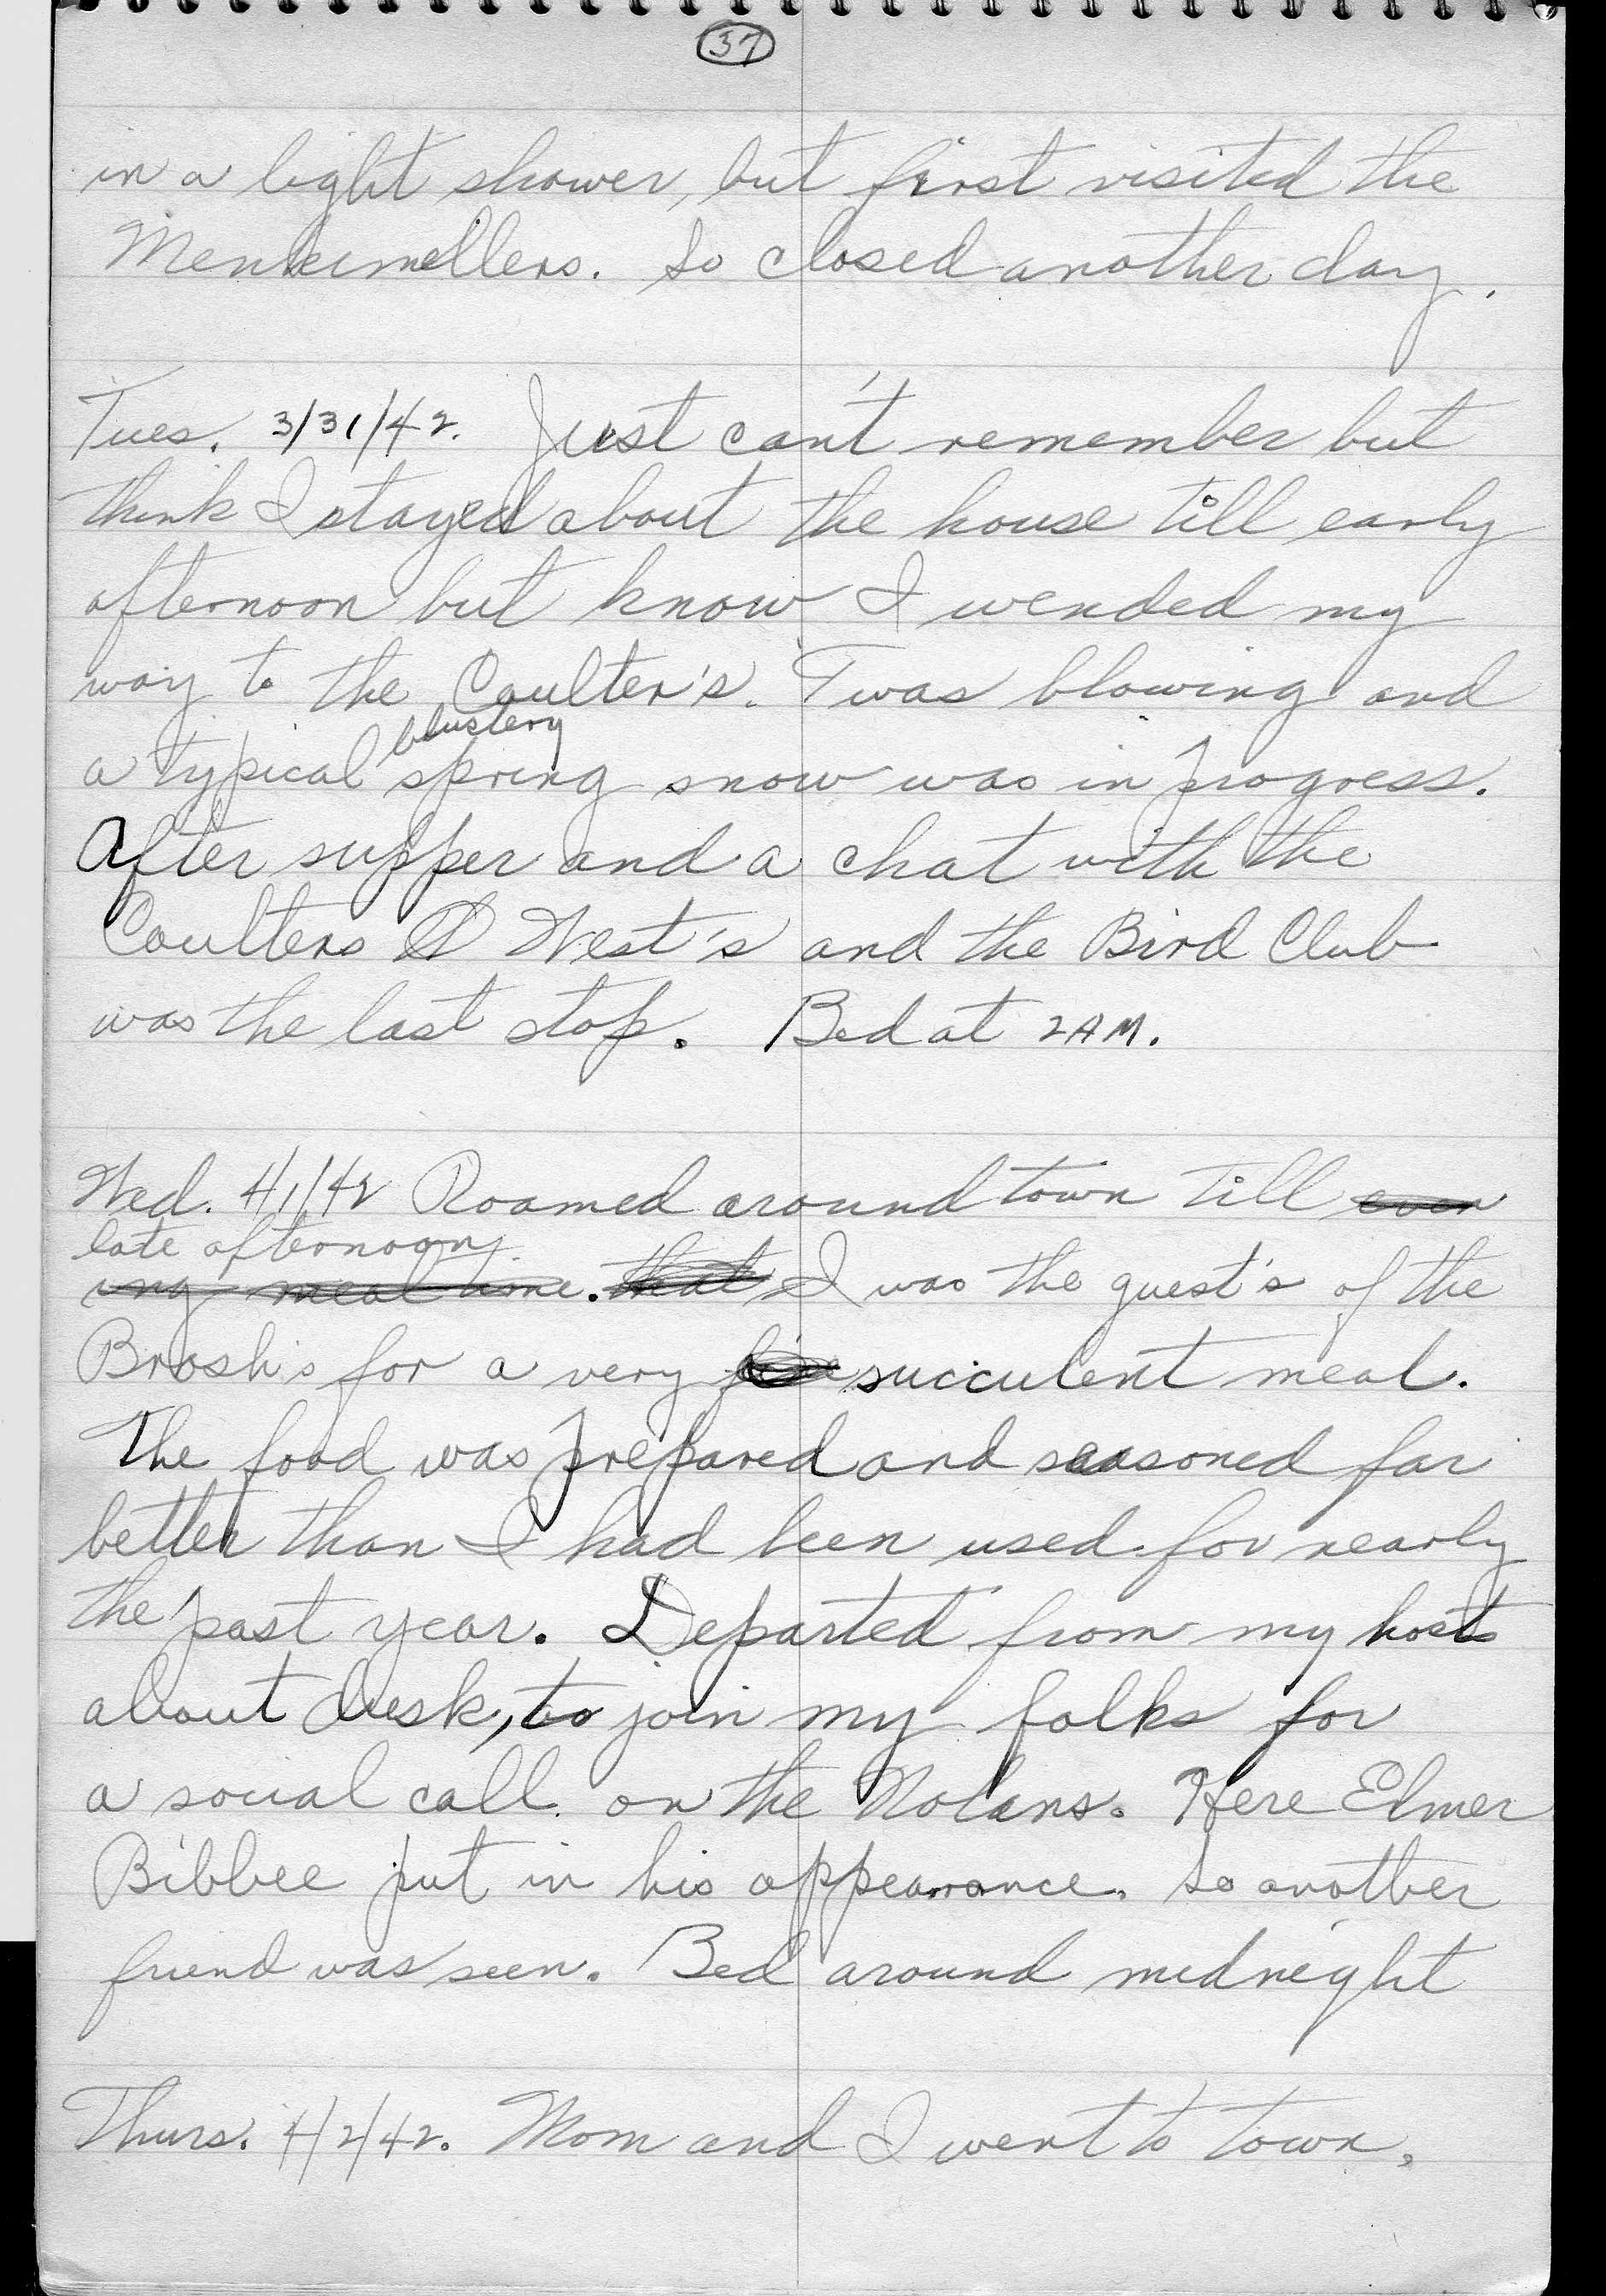 37
in a light shower, but first visited the
Menkemellers. So closed another day.
Tues. 3/31/42. Just can't remember but
think I stayed about the house till early
afternoon but know I wended my
way to the Coulter's. 'Twas blowing and
blustery
a typical spring snow was in progress.
After supper and a chat with the
Coulters West's and the Bird Club
was the last stop. Bed at 2AM.
Wed. 4/1/42 Roamed around town till even
late afternoon.
ing meal time. that I was the guest's of the
Brosh's for a very fine succulent meal.
The food was prepared and seasoned far
better than I had been used for nearly
the past year. Departed from my hosts
about dusk, to join my folks for
a social call on the Nolans. Here Elmer
Bibbee put in his appearance. So another
friend was seen. Bed around midnight
Thurs. 4/2/42. Mom and I went to town,